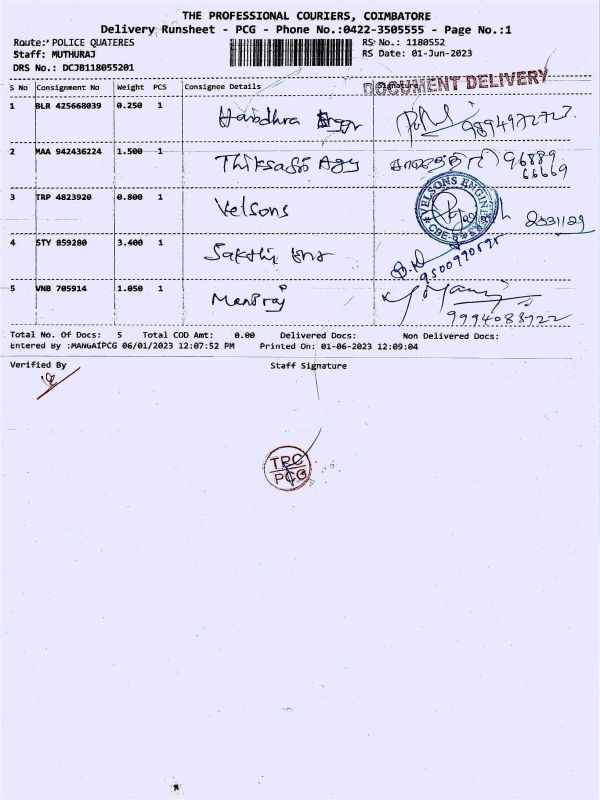 THE PROFESSIONAL COURIERS, COIMBATORE
Delivery Runsheet - PCG - Phone No.:0422-3505555 - Page No.:1
Route: POLICE QUATERES RS No.: 1180552
Staff: MUTHURAJ RS Date: 01-Jun-2023
DRS No.: DCJB118055201
DOCUMENT DELIVERY
S No Consignment No Weight PCS Consignee Details Signature
1 BLR 425668039 0.250 1
2 MAA 942436224 1.500 1 96889
66669
3 TRP 4823920 0.800 1 Velsons VELSONS ENGIN CBE-5
4 STY 859280 3.400 1 Sakthi 9500990595
5 VNB 705914 1.050 1 Manoraj 9994088722
Total No. Of Docs: 5 Total COD Amt: 0.00 Delivered Docs: Non Delivered Docs:
Entered By :MANGAIPCG 06/01/2023 12:07:52 PM Printed On: 01-06-2023 12:09:04
Verified By Staff Signature
TPC
PCG